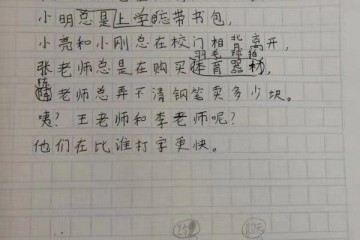 小明总是上学忘带书包，
小亮和小刚总在校门相背离开，
羽毛球拍
张老师总是在购买体育器材，
陈
老师总弄不清钢笔卖多少块。
咦？王老师和李老师呢？
他们在比谁打字更快。